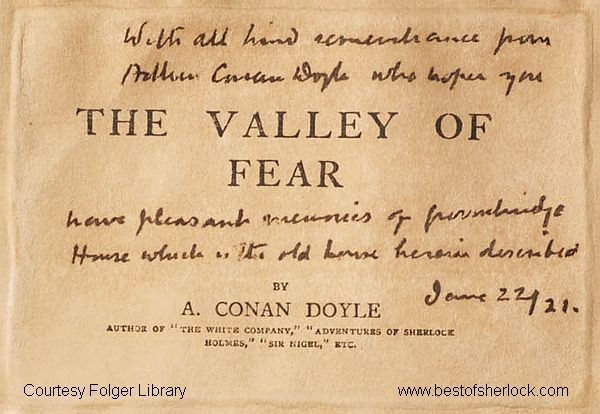 With all kind remembrance from
Arthur Conan Doyle who hopes you
THE VALLEY OF
FEAR
have pleasant memories of Groombridge
House which is the old house herein described
June 22/21.
BY
A. CONAN DOYLE
AUTHOR OF "THE WHITE COMPANY," "ADVENTURES OF SHERLOCK
HOLMES," "SIR NIGEL," ETC.
Courtesy Folger Library
www.bestofsherlock.com